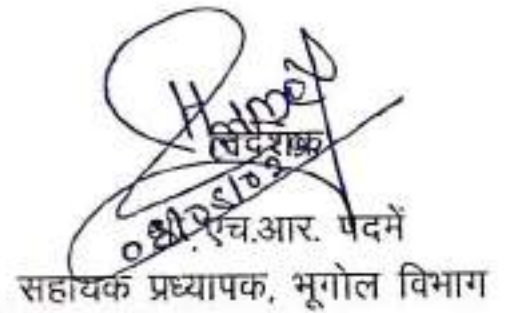 निदेशक
डॉ. एच.आर. पदमें
सहायक प्रध्यापक, भूगोल विभाग